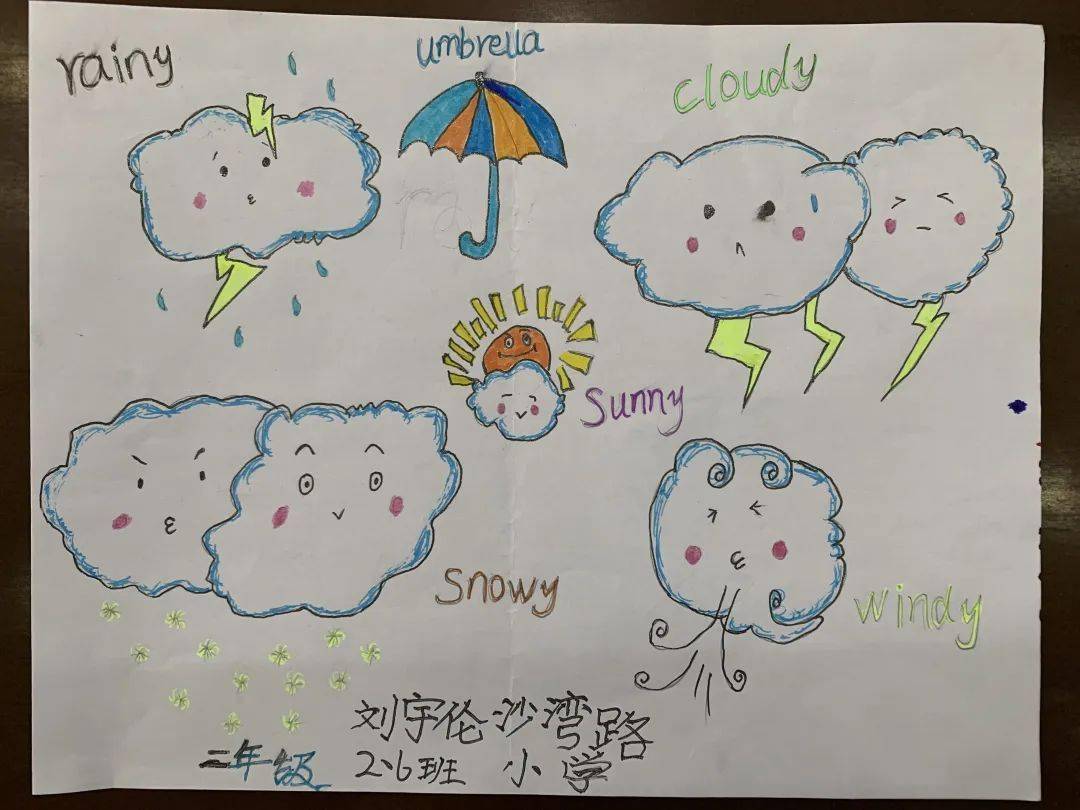 rainy
umbrella
cloudy
Sunny
Snowy
windy
刘宇伦 沙湾路
二年级 2、6班 小学